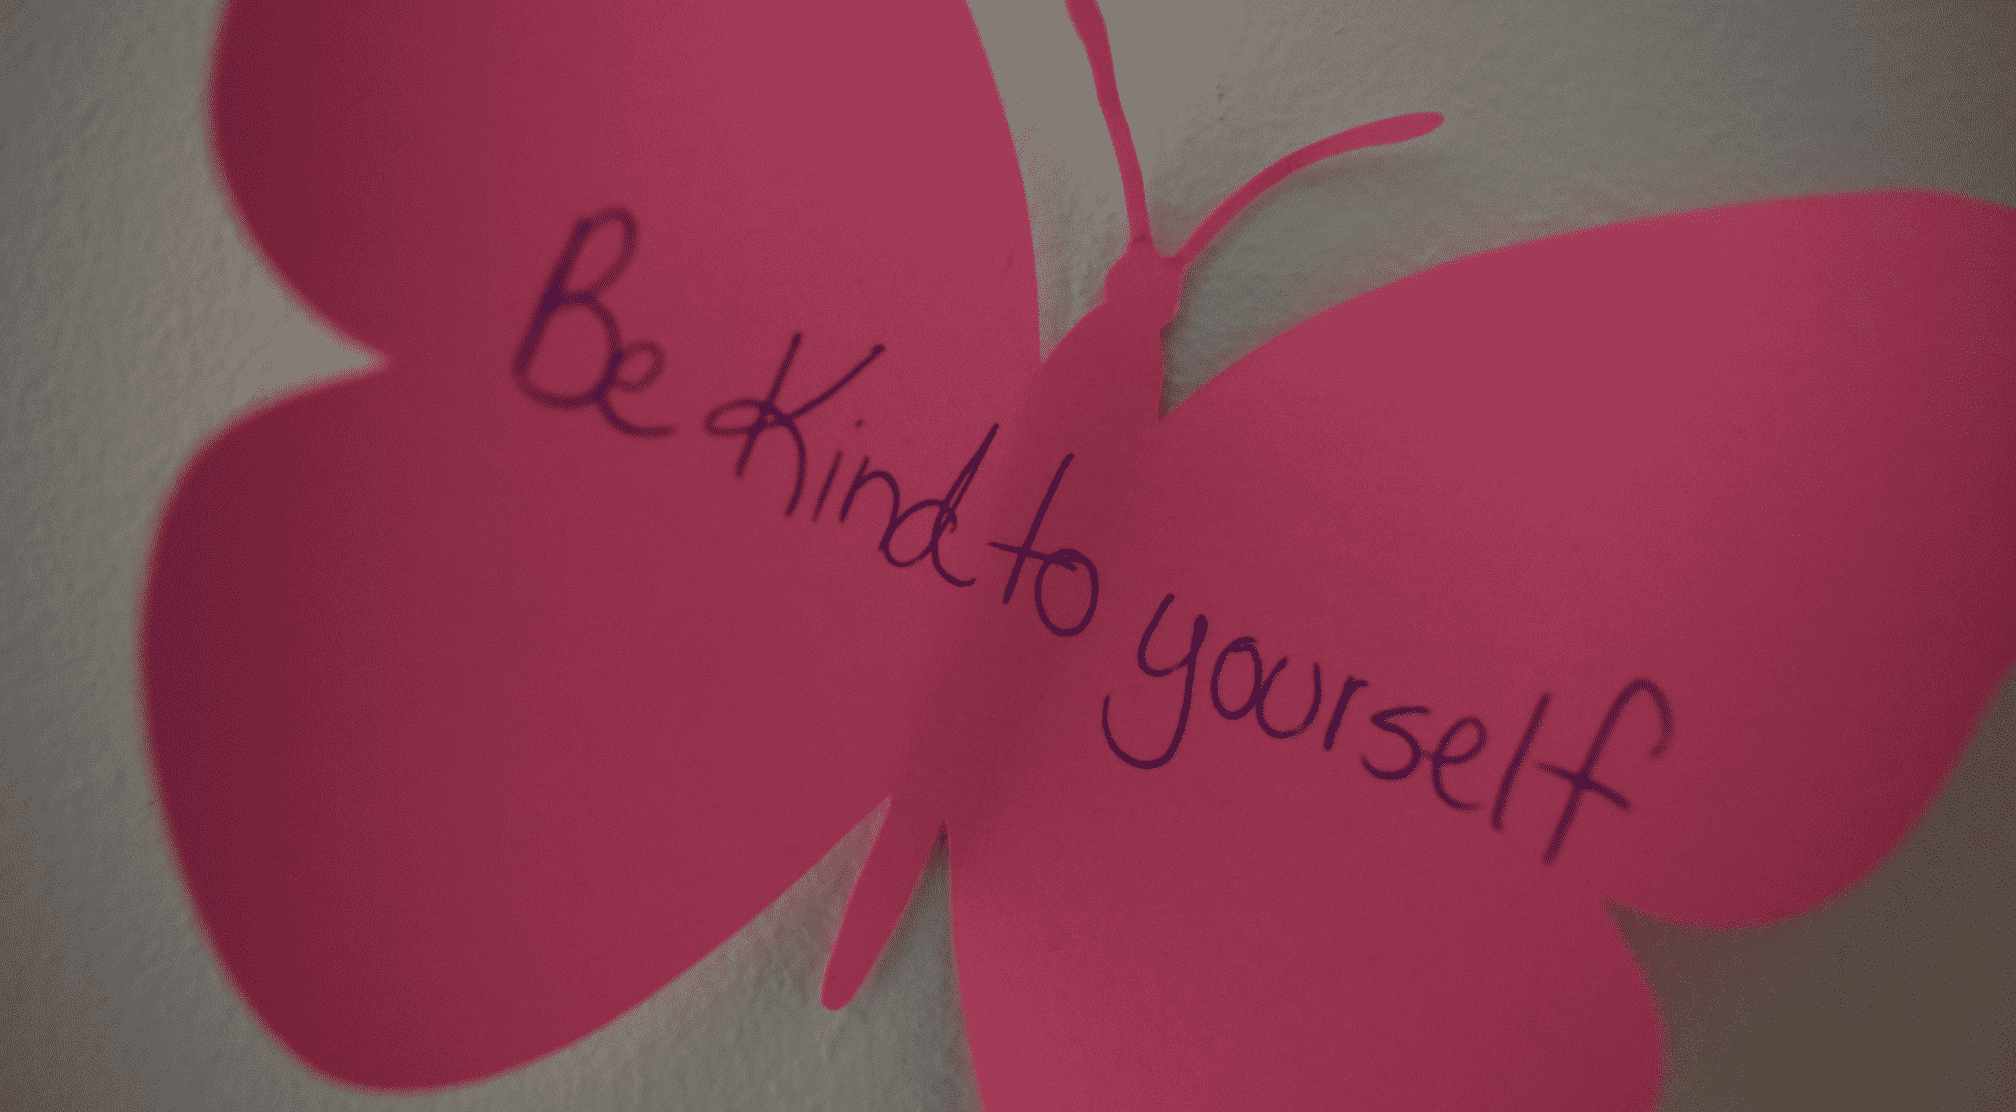 Be Kind to yourself